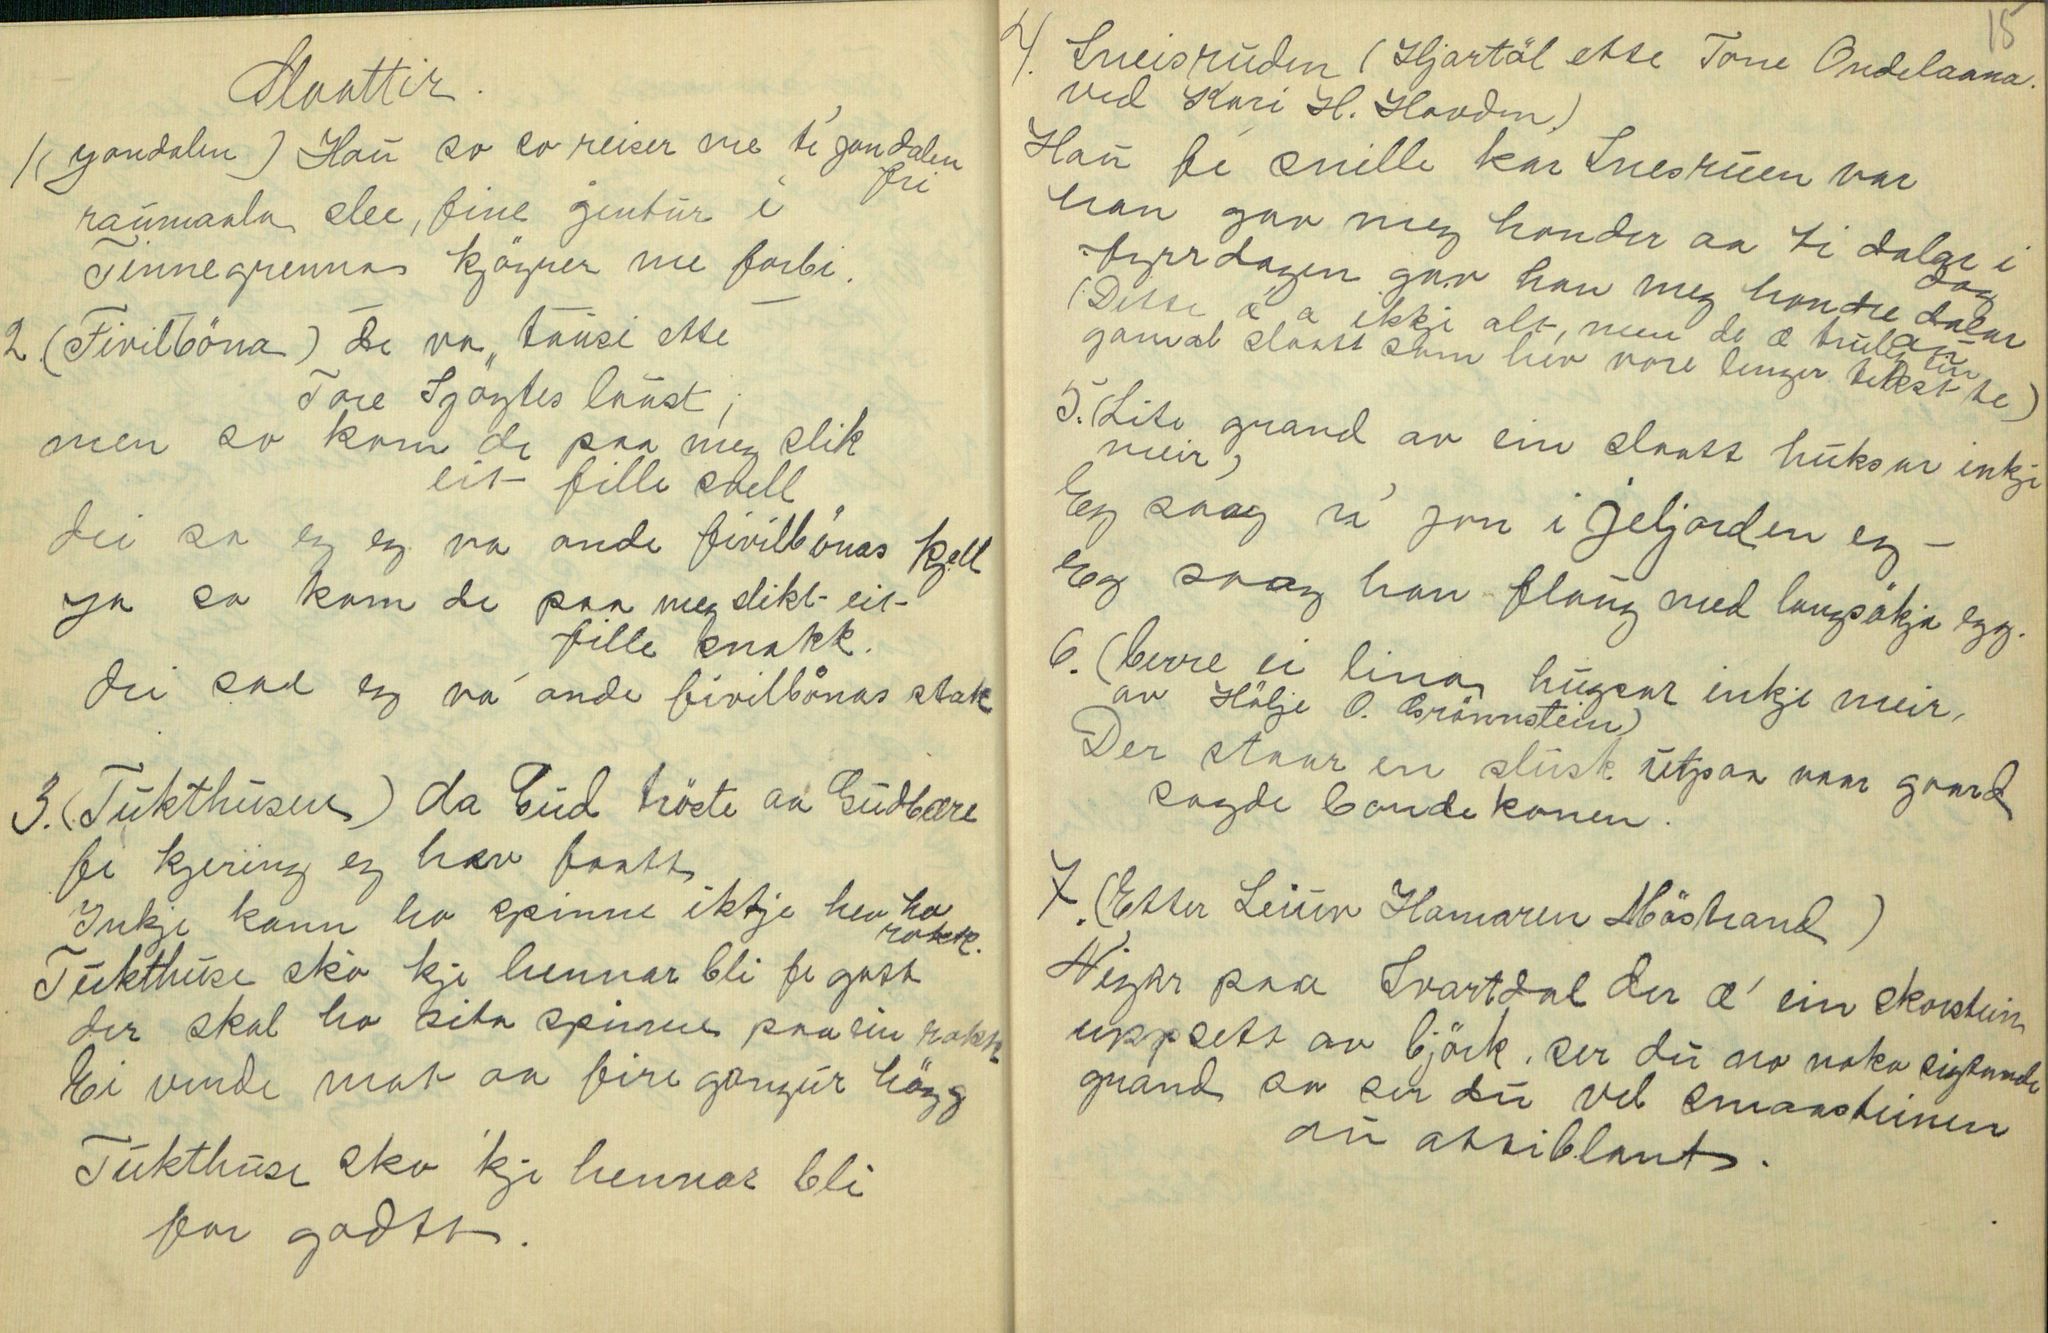 Slaattir.
1( Jondalen ) Hau so so reiser me te' jondalen
fri
raumaala slee, fine gjentur i
Tinnegrennas kjøyrer me forbi.
2. (Fivilböna) de va, tausi ette
Tore Sjøgtes laast;
men so kom de paa meg slik
eit fille snell
dei sa eg eg va onde fivilbönas kjell
ja so kom de paa meg slikt eit
fille snakk.
dei sae eg va' onde fivilbönas stakk
3. (Tukthusene) da Gud tröste aa Gudbære
fe kjering eg hev faatt
Inkje kann ho spinne iktje hev ho
rokk.
Tukthuse sko kje hennar bli fe gott
der skal ho sita spinne paa ein rokk
Ei vende mat aa fire gongur högg
Tukthuse sko 'kje hennar bli
for godtt.
15
4. Sneisruden (Hjartöl ette Tone Ondelaana.
ved Kari H. Hovden)
Hau fe snille kar Snesruen var
han gav meg honder aa ti dalar i
dag
fyrrdagen gav han meg hondre dalar
(Dette æ a ikkje alt, men de æ truleg ein
gamal slaatt som hev vore lenger tekst te)
5. (Lite grand av ein slaatt huksar inkje
meir)
Eg saag n' jon i jeljorden eg -
Eg saag han flaug med langsökja egg.
6. (berre ei lina, hugsar inkje meir,
av Hölje O. Grönnstein)
Der staar en slusk utpaa vaar gaard
sagde bondekonen.
7. (Etter Leiuv Hamaren Möstrand)
Nigar paa Svartdal der æ' ein skorstein
uppsett av björk. ser du no noko sigtande
grand so ser du vel smaasteinen
au attiblant.